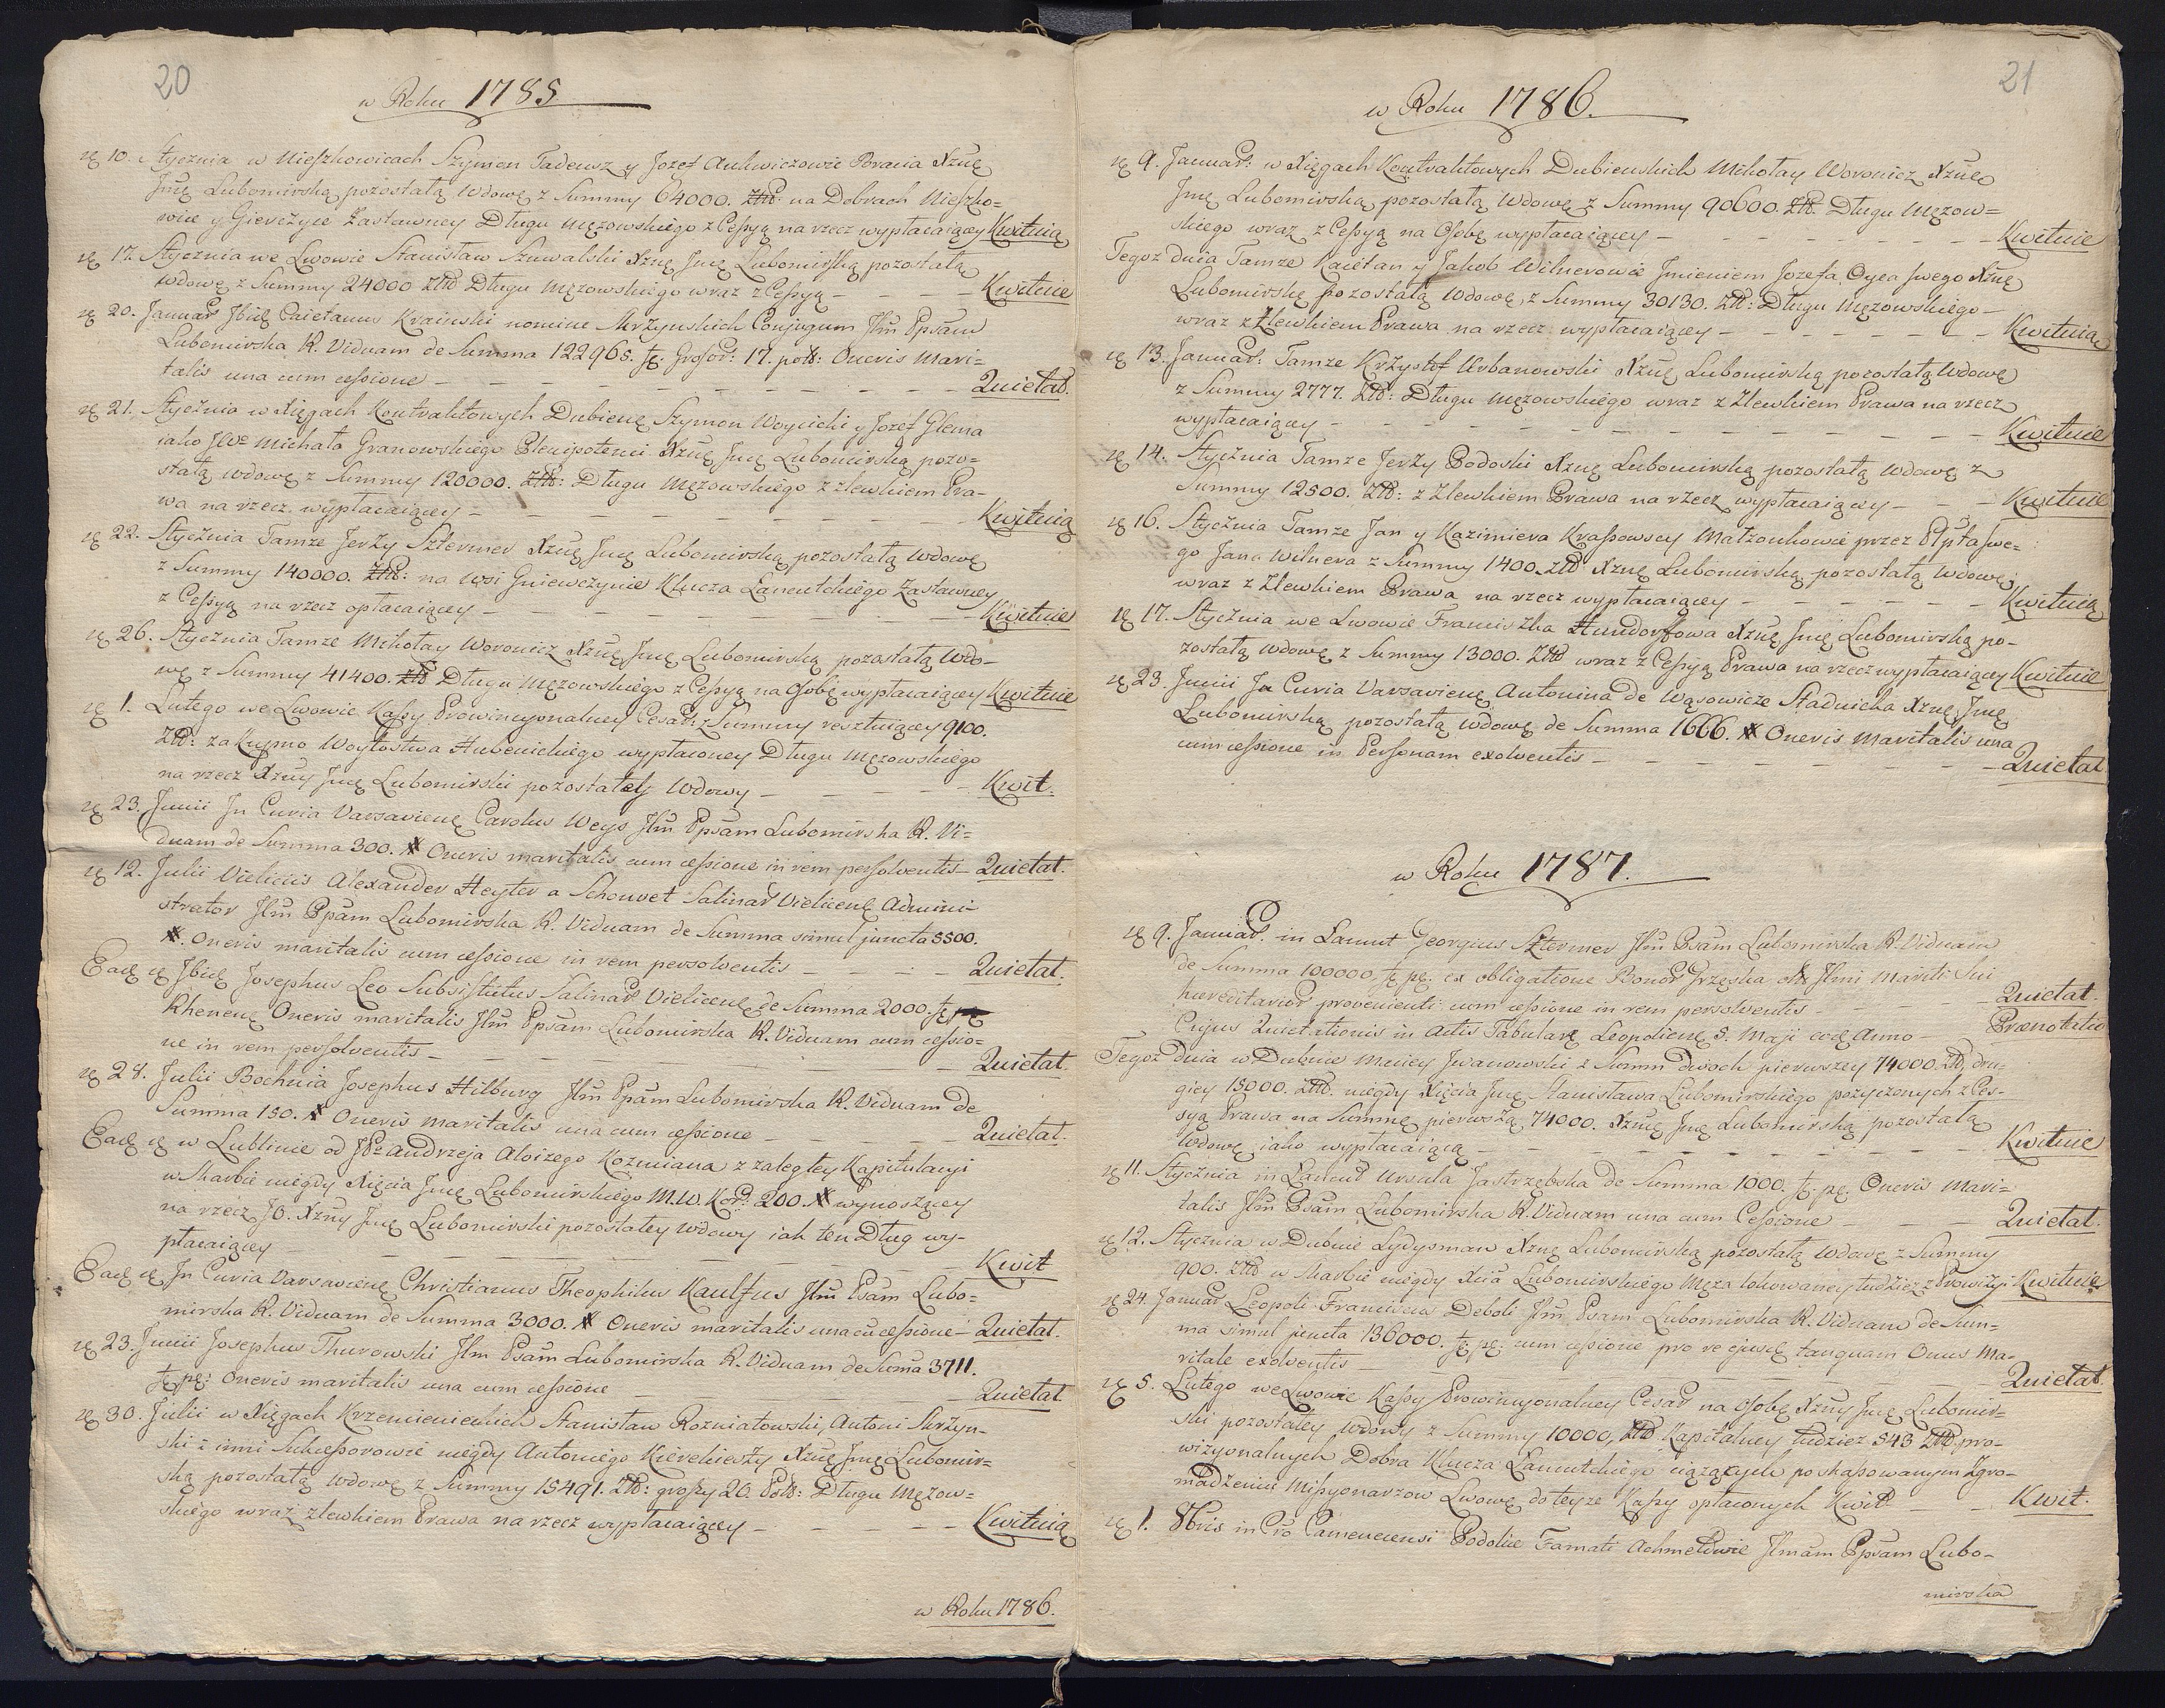 20
w Roku 1785
ię 10. Stycznia w Mieszkowicach Szymon Tadeusz y Jozef Ankwiczowie Bracia Xznę
Jmę Lubomirską pozostałą Wdowę z Summy 64000. Złł: na Dobrach Mieszko=
wice y Gierczyce Zastawney Długu mężowskiego z Cessyą na rzecz wypłacaiącey Kwituią
ię 17. Stycznia we Lwowie Stanisław Szuwalski Xznę Jmę Lubomirską pozostałą
Wdowę z Summy 24000 Złł Długu Mężowskiego wraz z Cessyą — Kwituie
ię 20. Januar Ibię Caietanus Krainski nomine Mrzynskich Conjugum Jllm Ppsam
Lubomirska R. Viduam de Summa 122965. fę. Grosor: 17. poll: Oneris Mari=
talis una cum cessione — Quietat.
ię 21. Stycznia w Xięgach Kontraktowych Dubienę Szymon Woycicki y Jozef Glema
iako JWo Michała Granowskiego Plenipotenci Xznę Jmę Lubomirską pozo=
stałą Wdowę z Summy 120000. Złł: Długu Mężowskiego z zlewkiem Pra-
wa na rzecz wypłacaiącey — Kwituią
ię 22. Stycznia Tamze Jerzy Sztermer Xznę Jmę Lubomirską pozostałą Wdowę
z Summy 140000. Złł: na wsi Gniewczynie Klucza Łancutckiego Zastawney
z Cessyą na rzecz opłacaiącey — Kwituie
ię 26. Stycznia Tamze Mikołay Woronicz Xznę Jmę Lubomirską pozostałą Wdo-
wę z Summy 41400. Złł Długu Mężowskiego z Cessyą na Osobę wypłacaiącey Kwituie
ię 1. Lutego we Lwowie Kassy Prowincyonalney Cesar: z Summy resztuiącey 9100.
Złł: za Kupno Woytostwa Husenickiego wypłaconey Długu Mężowskiego
na rzecz Xzny Jmę Lubomirski pozostałey Wdowy — Kwit.
ię 23. Junii Jn Curia Varsavienę Carolus Weys Jllm Ppsam Lubomirska R. Vi=
duam de Summa 300. # Oneris maritalis cum cessione in rem persolventis — Quietat.
ię 12. Julii Vieliciis Alexander Heyter a Schonvet Salinar Vielicenę Admini-
strator Jllm Ppsam Lubomirska R. Viduam de Summa simul juncta 5500.
#. Oneris maritalis cum cessione in rem persolventis — Quietat.
Eadę ię Ibię Josephus Leo Subsistutus Salinar Vielicenę de Summa 2000. fę
Rhenenę Oneris maritalis Jllm Ppsam Lubomirska R. Viduam cum cessio=
ne in rem persolventis — Quietat.
ię 28. Julii Bochnia Josephus Hilburg Jllm Ppsam Lubomirska R. Viduam de
Summa 150. # Oneris maritalis una cum cessione — Quietat.
Eadę ię w Lublinie od JPa Andrzeja Aloizego Kozmiana z zaległey Kapitulacyi
w Skarbie niegdy Xięcia Jmę Lubomirskiego M.W. Kor: 200. # wynoszącey
na rzecz JO. Xzny Jmę Lubomirski pozostałey Wdowy iak ten Dług wy-
płacaiącey — Kwit
Eadę ię Jn Curia Varsavienę Christianus Theophilus Kaulfus Jllm Psam Lubo=
mirska R. Viduam de Summa 3000. # Oneris maritalis una cu cessione — Quietat.
ię 23. Junii Josephus Thurowski Jllm Psam Lubomirska R. Viduam de Suma 3711.
fę pę: Oneris maritalis una cum cessione — Quietat
ię 30. Julii w Xięgach Krzemienieckich Stanisław Rozniatowski, Antoni Skrzyn-
ski i inni Sukcessorowie niegdy Antoniego Kierekieszy Xznę Jmę Lubomir=
ską pozostałą Wdowę z Summy 15491. Złł: groszy 20. Poll: Długu Mężow=
skiego wraz zlewkiem Prawa na rzecz wypłacaiącey — Kwituią
w Roku 1786.
21
w Roku 1786.
ię 9. Januar: w Xięgach Kontraktowych Dubienskich Mikołay Woronicz Xznę
Jmę Lubomirską pozostałą Wdowę z Summy 90600. Złł. Długu Mężow=
skiego wraz z Cessyą na Osobę wypłacaiącey — Kwituie
Tegoz dnia Tamze Kaietan y Jakob Wilnerowie Jmieniem Jozefa Oyca swego Xznę
Lubomirskę pozostałą Wdowę, z Summy 30130. Złł: Długu Mężowskiego —
wraz z Zlewkiem Prawa na rzecz wypłacaiącey — Kwituią
ię 13. Januar: Tamze Krzystof Urbanowski Xznę Lubomirską pozostałą Wdowę
z Summy 2777. Złł: Długu Mężowskiego wraz z Zlewkiem Prawa na rzecz
wypłacaiącey — Kwituie
ię 14. Stycznia Tamze Jerzy Podoski Xznę Lubomirską pozostałą Wdowę z
Summy 12500. Złł: z Zlewkiem Prawa na rzecz wypłacaiącey — Kwituie
ię 16. Stycznia Tamze Jan y Kazimiera Krassowscy Małzonkowie przez Plpta swe=
go Jana Wilnera z Summy 1400. Złł Xznę Lubomirską pozostałą Wdowę,
wraz z Zlewkiem Prawa na rzecz wypłacaiącey — Kwituią
ię 17. Stycznia we Lwowie Franciszka Hundorffowa Xznę Jmę Lubomirską po-
zostałą Wdowę z Summy 13000. Złł wraz z Cessyą Prawa na rzecz wypłacaiącey Kwituie
ię 23. Junii Jn Curia Varsavienę Antonina de Wąsowicze Stadnicka Xznę Jmę
Lubomirską pozostałą Wdowę de Summa 1666. # Oneris Maritalis una
cum cessione in Personam exolventis — Quietat
w Roku 1787.
ię 9. Januar. in Lancut Georgius Sztermer Jllm Psam Lubomirska R. Viduam
de Summa 100000 fę pę: ex obligatione Bonor Grzęska olt Jllmi Mariti Sui
haereditarior provenienti cum cessione in rem persolventis — Quietat.
Cujus Quietationis in Actis Tabularę Leopolienę 8. Maji eodę Anno — Prænotatio
Tegoz dnia w Dubnie Maciey Jwanowski z Summ dwoch pierwszey 74000. Złł, dru-
giey 15000. Złł. niegdy Xięcia Jmę Stanisława Lubomirskiego pozyczonych z Ces-
syą Prawa na Summę pierwszą 74000. Xznę Jmę Lubomirską pozostałą
Wdowę iako wypłacaiącą — Kwituie
ię 11. Stycznia in Lancut Ursula Jastrzębska de Summa 1000. fę pę. Oneris Mari=
talis Jllm Psam Lubomirska R. Viduam una cum Cessione — Quietat.
ię 12. Stycznia w Dubnie Lydysman Xznę Lubomirską pozostałą Wdowę z Summy
900. Złł w Skarbie niegdy Xcia Lubomirskiego Męża lokowaney tudziez z Prowizyi Kwituie
ię 24. Januar Leopoli Franciscus Deboli Jllm Psam Lubomirska R. Viduam de Sum-
ma simul juncta 136000. fę pę: cum cessione pro re ejusdę tanquam Onus Ma-
ritale exolventis — Quietat.
ię 5. Lutego we Lwowie Kassy Prowincyonalney Cesar na Osobę Xzny Jmę Lubomir-
ski pozostałey Wdowy z Summy 10000, Złł Kapitalney tudziez 543 Złł pro-
wizyonalnych Dobra Klucza Łancutckiego ciążących po skassowanym Zgro-
madzeniu Missyonarzow Lwowę do teyze Kassy opłaconych Kwit — Kwit.
ię 1. 8bris in Cro Camenecensi Podoliæ Famati Achmetowie Jllmam Ppsam Lubo-
mirska